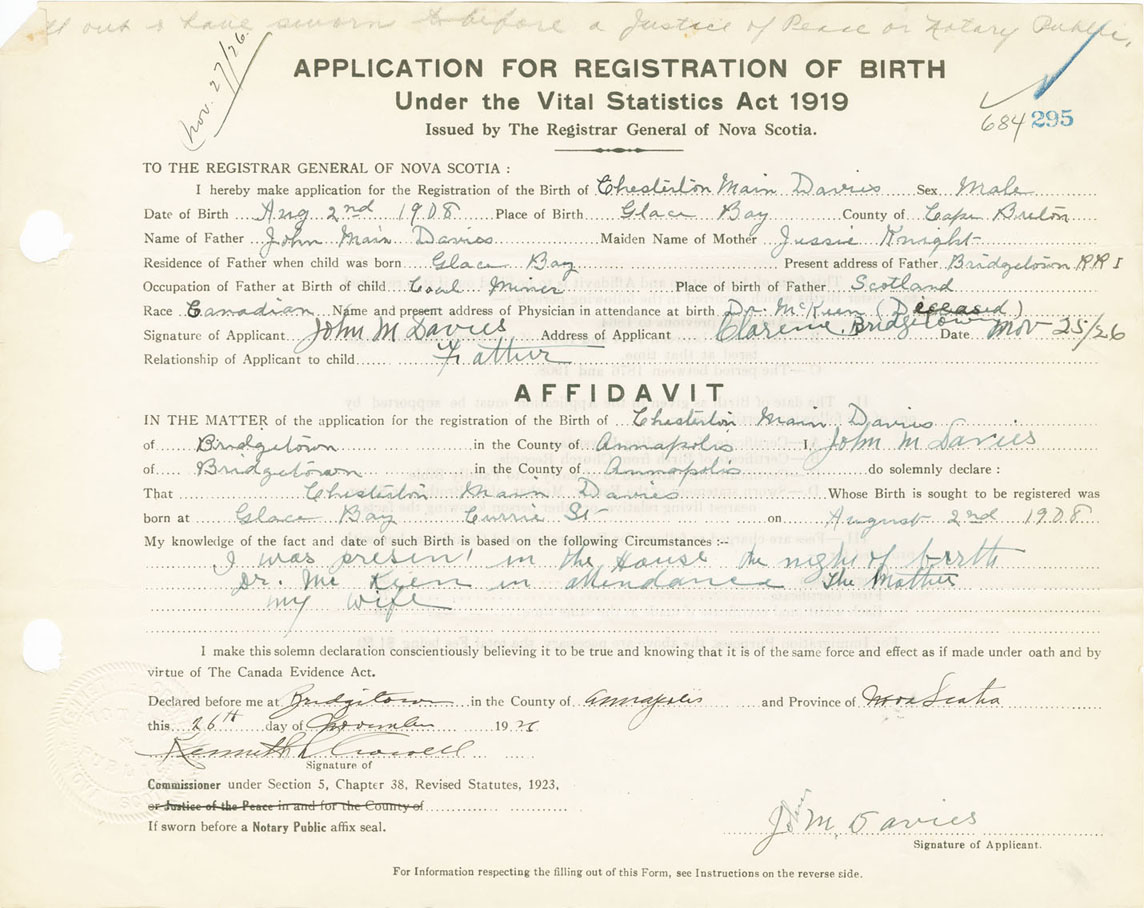 out & have sworn to before a Justice of Peace or Notary Public,
Nov. 27/26
APPLICATION FOR REGISTRATION OF BIRTH
Under the Vital Statistics Act 1919
684 295
Issued by The Registrar General of Nova Scotia.
TO THE REGISTRAR GENERAL OF NOVA SCOTIA :
I hereby make application for the Registration of the Birth of Chesterton Main Davies Sex Male
Date of Birth Aug 2nd 1908 Place of Birth Glace Bay County of Cape Breton
Name of Father John Main Davies Maiden Name of Mother Jessie Knight
Residence of Father when child was born Glace Bay Present address of Father Bridgetown RR 1
Occupation of Father at Birth of child Coal Miner Place of birth of Father Scotland
Race Canadian Name and present address of Physician in attendance at birth Dr. McKeen (Diceased)
Signature of Applicant John M Davies Address of Applicant Clarence, Bridgetown Date Nov 25/26
Relationship of Applicant to child Father
AFFIDAVIT
IN THE MATTER of the application for the registration of the Birth of Chesterton Main Davies
of Bridgetown in the County of Annapolis I, John M Davies
of Bridgetown in the County of Annapolis do solemnly declare :
That Chesterton Main Davies Whose Birth is sought to be registered was
born at Glace Bay Currie St on August 2nd 1908
My knowledge of the fact and date of such Birth is based on the following Circumstances :--
I was present in the House the night of birth
Dr. McKeen in attendance The Mother
my wife
I make this solemn declaration conscientiously believing it to be true and knowing that it is of the same force and effect as if made under oath and by
virtue of The Canada Evidence Act.
Declared before me at Bridgetown in the County of Annapolis and Province of Nova Scotia
this 26th day of November 1926
Kenneth L Crowell
Signature of
Commissioner under Section 5, Chapter 38, Revised Statutes, 1923,
or Justice of the Peace in and for the County of
If sworn before a Notary Public affix seal.
John M. Davies
Signature of Applicant.
For Information respecting the filling out of this Form, see Instructions on the reverse side.